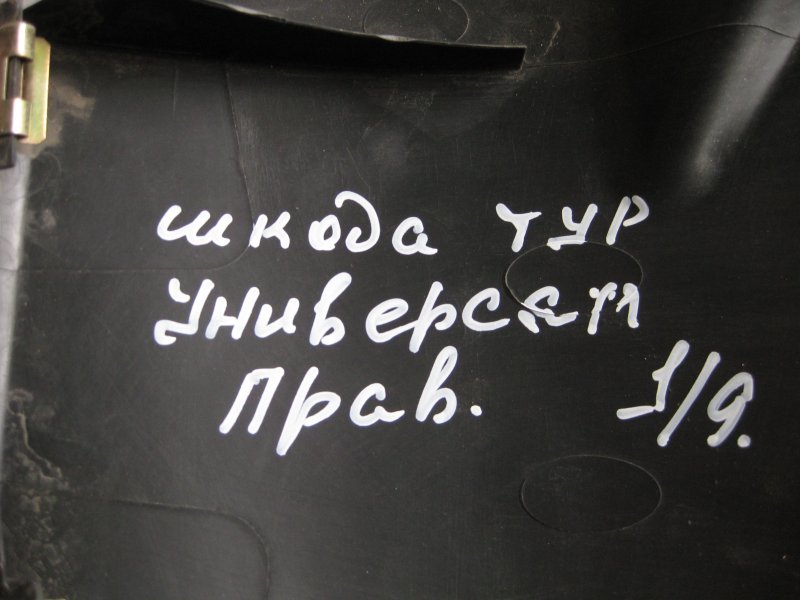 шкода тур
универсал
прав. 1/9.